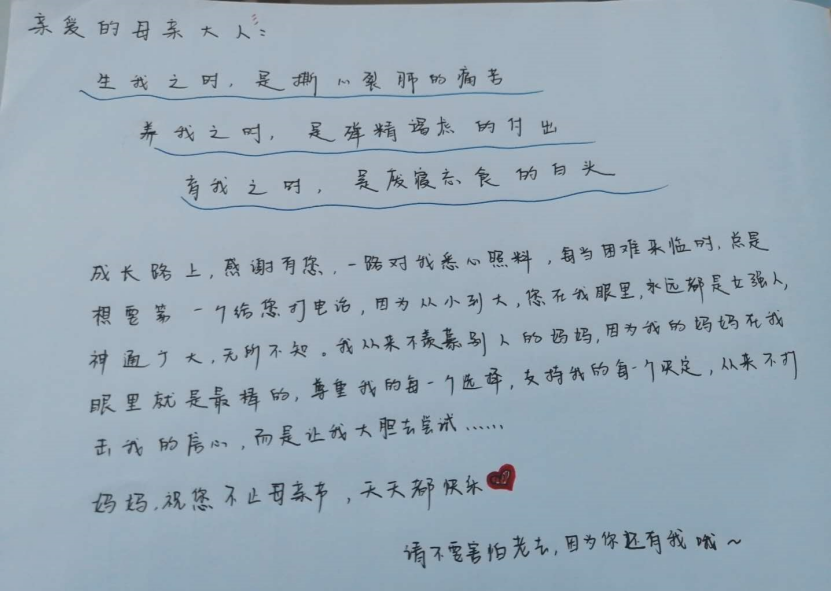 亲爱的母亲大人：
生我之时，是撕心裂肺的痛苦
养我之时，是殚精竭虑的付出
育我之时，是废寝忘食的白头
成长路上，感谢有您，一路对我悉心照料，每当困难来临时，总是
想要第一个给您打电话，因为从小到大，您在我眼里，永远都是女强人，
神通广大，无所不知。我从来不羡慕别人的妈妈，因为我的妈妈在我
眼里就是最棒的，尊重我的每一个选择，支持我的每一个决定，从来不打
击我的信心，而是让我大胆去尝试……
妈妈，祝您不止母亲节，天天都快乐
请不要害怕老去，因为你还有我哦～